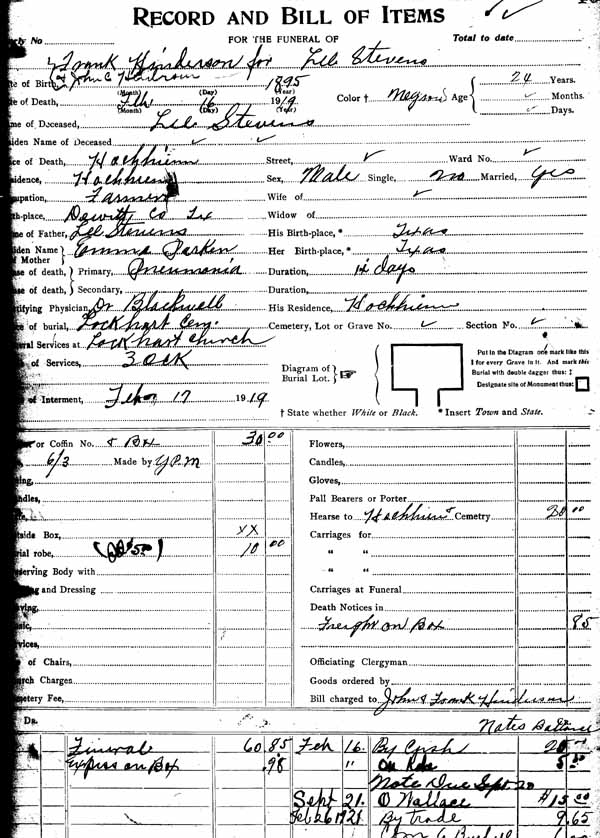 RECORD AND BILL OF ITEMS
rly No FOR THE FUNERAL OF Total to date
Frank Hinderson for Lee Stevens
& John C
e of Birth, 1895 24 Years.
(Month) (Day) (Year)
e of Death, Feb 16 1919 Color † Negro Age Months.
(Month) (Day) (Year) Days.
me of Deceased, Lee Stevens
iden Name of Deceased
ce of Death, Hochhiem Street, Ward No.
idence, Hochhiem Sex, Male Single, no Married, yes
upation, Farmer Wife of
th-place, Dewitt Co Tex Widow of
e of Father, Lee Stevens His Birth-place,* Texas
iden Name of Mother Emma Parker Her Birth-place,* Texas
se of death, Primary, Pneumonia Duration, 12 days
se of death, Secondary, Duration,
tifying Physician, Dr Blackwell His Residence, Hochhiem
e of burial, Lockhart Cem. Cemetery, Lot or Grave No. Section No.
eral Services at Lockhart Church
of Services, 3 OCK
Diagram of Burial Lot.
Put in the Diagram one mark like this I for every Grave in it. And mark this Burial with double dagger thus: ‡
Designate site of Monument thus:
of Interment, Feb 17 1919 † State whether White or Black. * Insert Town and State.
or Coffin No. & Box 30 00 Flowers,
6/3 Made by Y.P.M Candles,
ing, Gloves,
ndles, Pall Bearers or Porter
Hearse to Hochhiem Cemetry 20 00
tside Box, XX Carriages for
rial robe, 10 00 " "
serving Body with " "
g and Dressing Carriages at Funeral
aving, Death Notices in
sic, Freight on Box 85
rvices,
of Chairs, Officiating Clergyman
rch Charges Goods ordered by
metery Fee, Bill charged to John & Frank Hinderson
Dr. Notes Ballance
Funeral 60.85 Feb 16. By Cash 20
Express on Box .98 " on 5
Note Due Sept 20
Sept 21. O Wallace $15 00
Feb 26 1921 By Trade 9.65